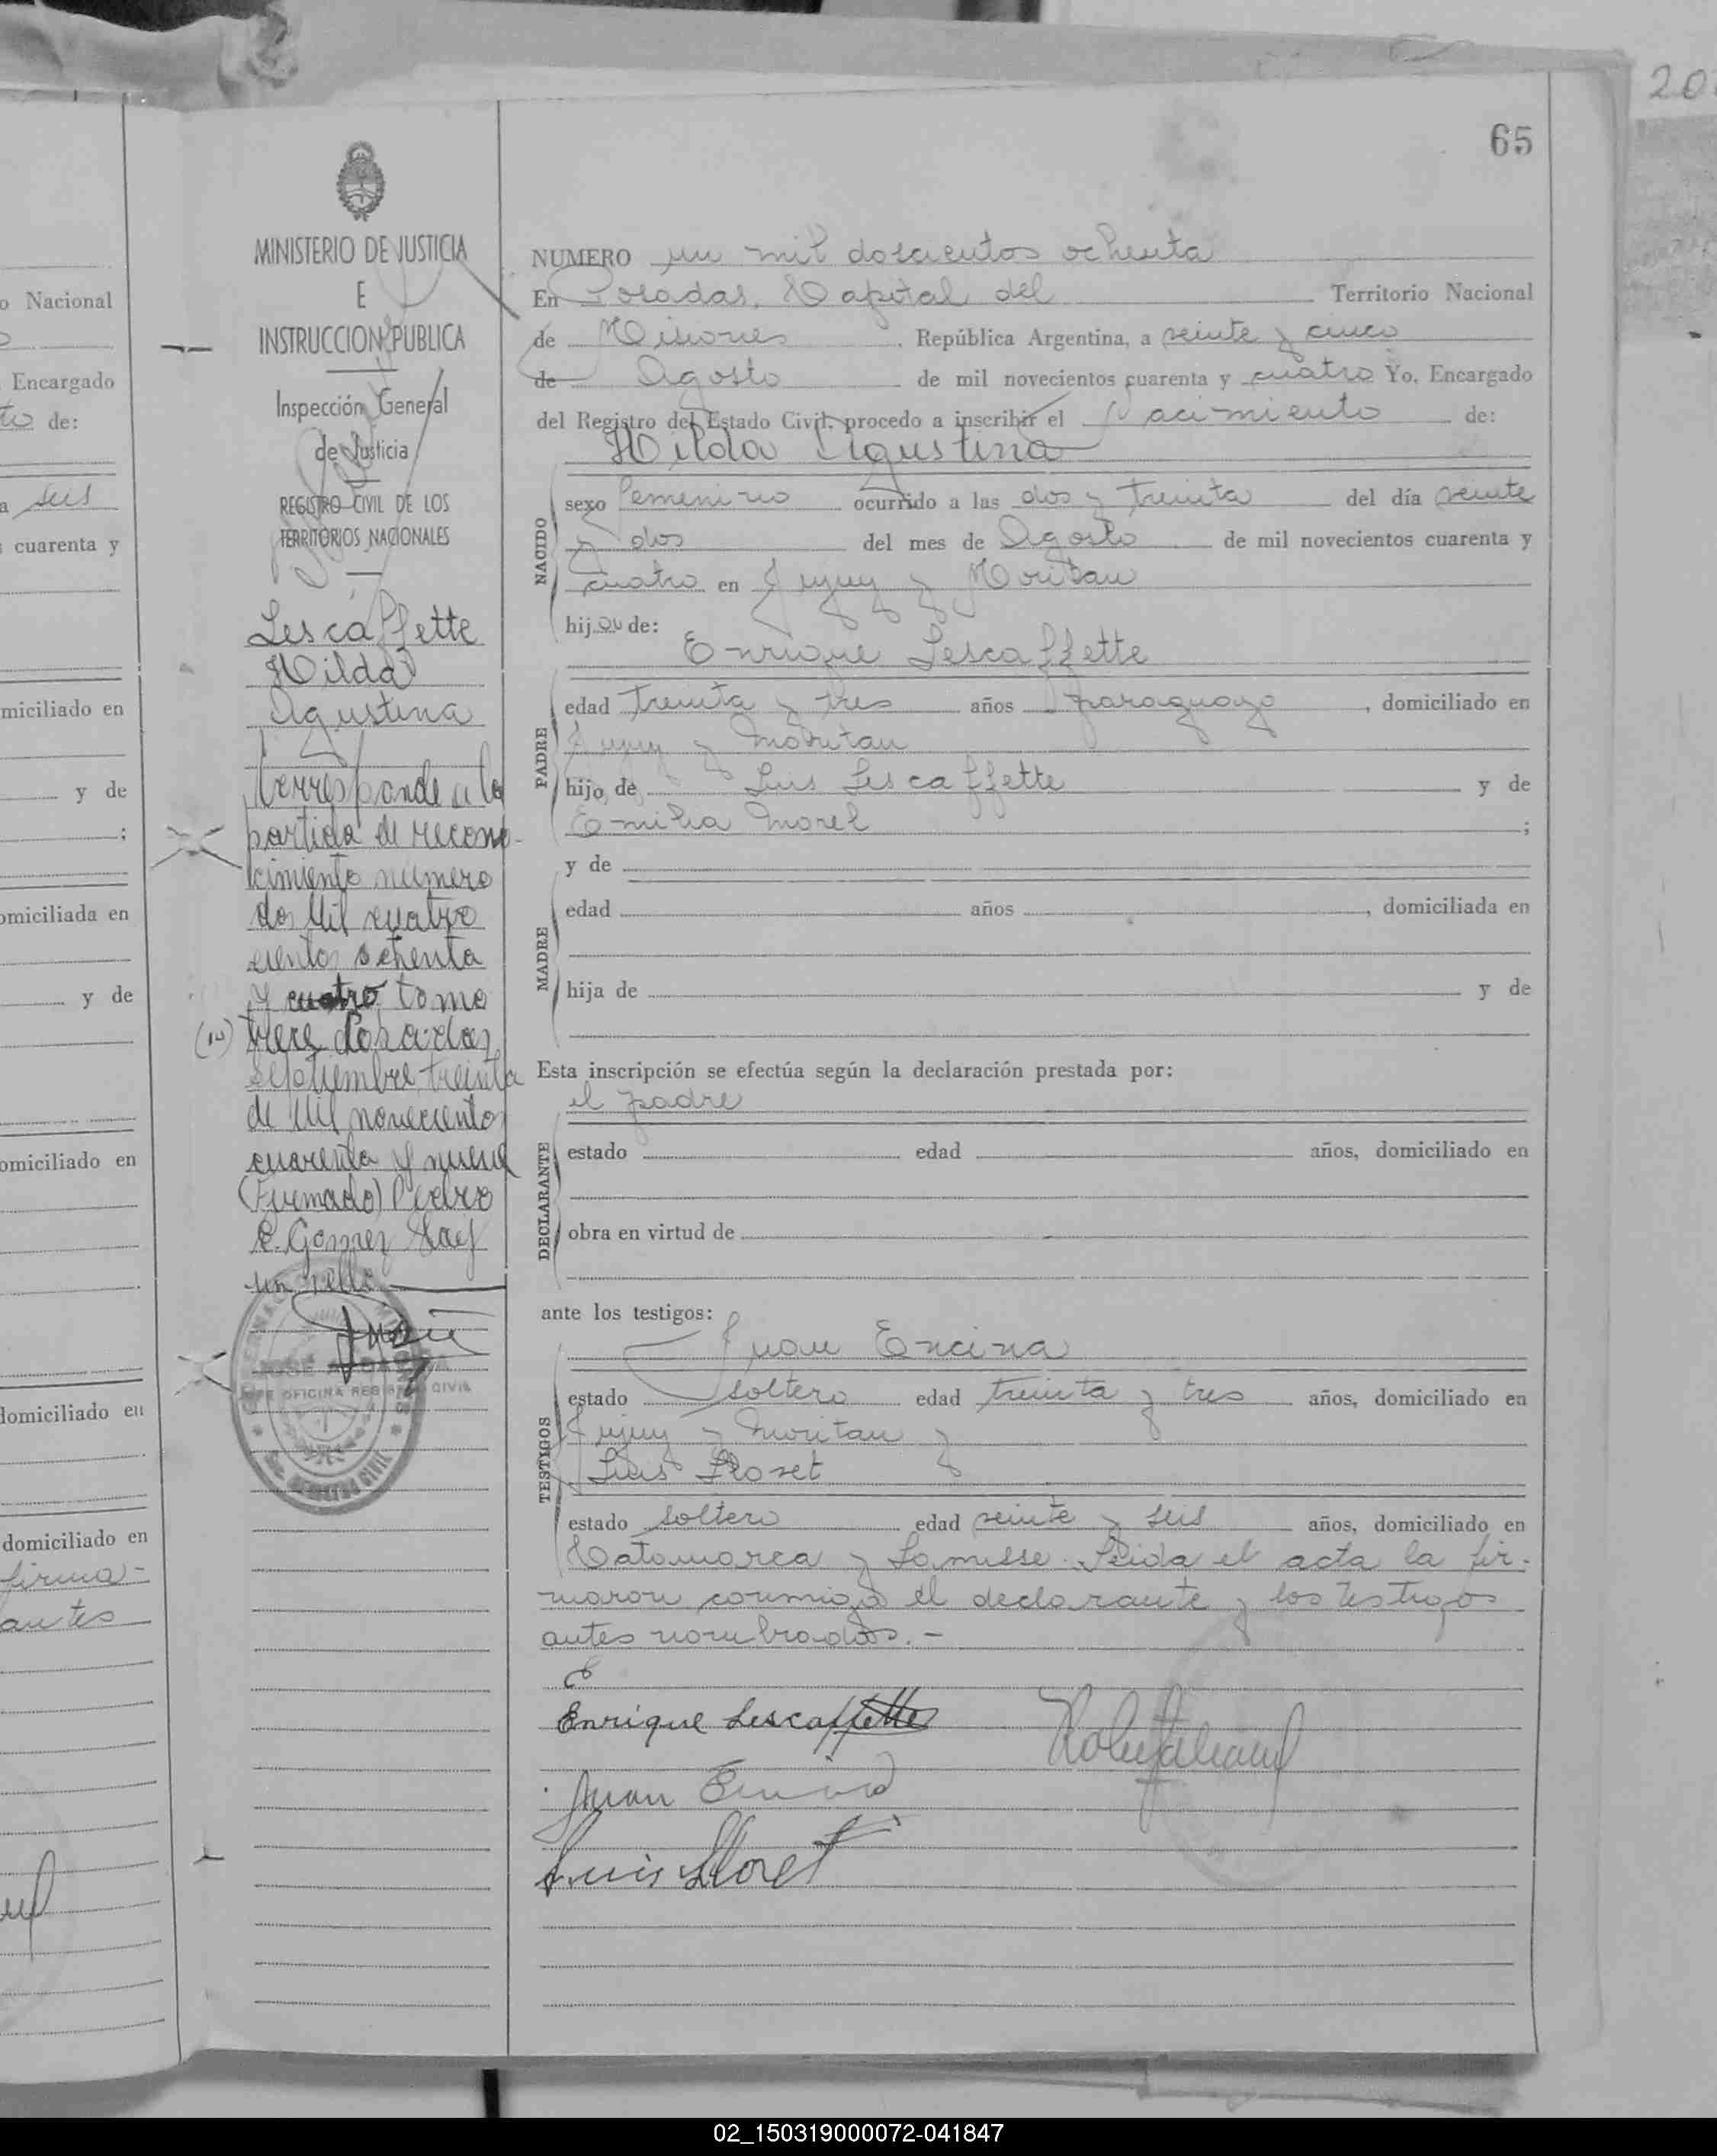 65
MINISTERIO DE JUSTICIA
E
INSTRUCCION PUBLICA
Inspección General
de Justicia
REGISTRO CIVIL DE LOS
TERRITORIOS NACIONALES
Lescaffette
Hilda
Agustina
Corresponde a la
partida de recono-
cimiento número
dos Mil cuatro
cientos setenta
y cuatro tomo
trece Posadas
Septiembre treinta
de Mil novecientos
cuarenta y nueve
(Firmado) Pedro
E. Gomez
un sello
OFICINA REGISTRO CIVIL
NUMERO un mil doscientos ochenta
En Posadas, Capital del Territorio Nacional
de Misiones República Argentina, a veinte y cinco
de Agosto de mil novecientos cuarenta y cuatro Yo, Encargado
del Registro del Estado Civil, procedo a inscribir el Nacimiento de:
Hilda Agustina
NACIDO
sexo femenino ocurrido a las dos y treinta del día veinte
y dos del mes de Agosto de mil novecientos cuarenta y
cuatro en Jujuy y Moritan
hija de:
Enrique Lescaffette
PADRE
edad treinta y tres años paraguayo, domiciliado en
Jujuy y Moritan
hijo de Luis Lescaffette y de
Emilia Morel ;
y de
MADRE
edad años , domiciliada en
hija de y de
Esta inscripción se efectúa según la declaración prestada por:
el padre
DECLARANTE
estado edad años, domiciliado en
obra en virtud de
ante los testigos:
Juan Encina
TESTIGOS
estado soltero edad treinta y tres años, domiciliado en
Jujuy y Moritan y
Luis Lloret
estado soltero edad veinte y seis años, domiciliado en
Catamarca y . Leida el acta la fir-
maron conmigo el declarante y los testigos
antes nombrados.-
E
Enrique Lescaffette
Juan Encina
Luis Lloret
o Nacional
Encargado
to de:
a seis
cuarenta y
miciliado en
y de
;
omiciliada en
y de
omiciliado en
domiciliado en
domiciliado en
firma-
antes
02_150319000072-041847